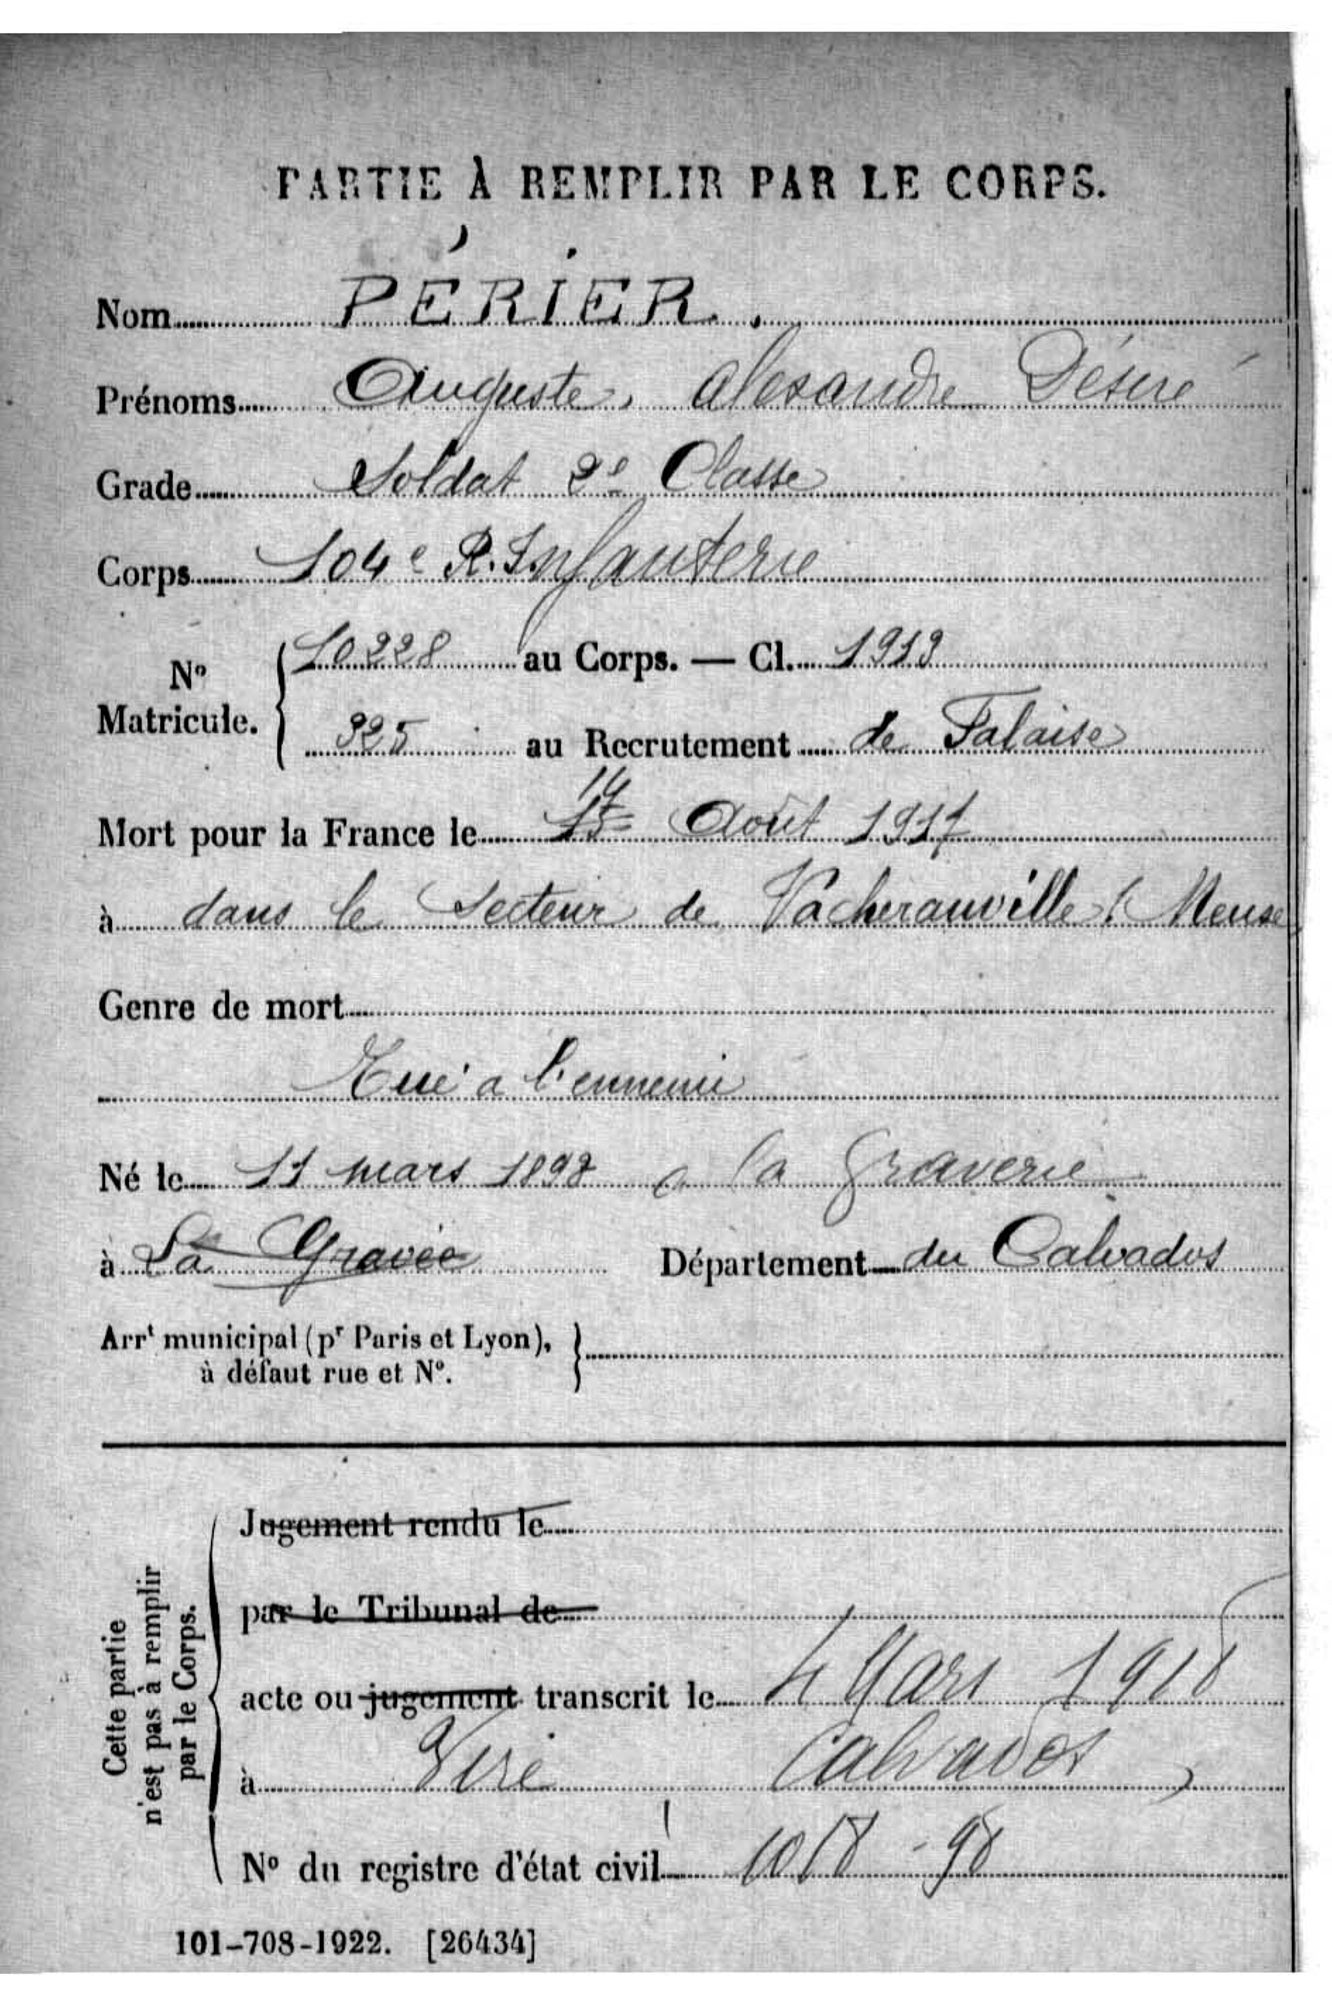 PARTIE À REMPLIR PAR LE CORPS.
Nom PÉRIER.
Prénoms Auguste, Alexandre Désiré
Grade Soldat 2e Classe
Corps 104e R. Infanterie
No Matricule. 10228 au Corps. — Cl. 1913
325 au Recrutement de Falaise
14
Mort pour la France le 15 Août 1917
à dans le Secteur de Vacherauville (Meuse)
Genre de mort
Tué a l'ennemi
Né le 11 mars 1892 a la Graverie
à La Gravée Département du Calvados
Arrt municipal (pr Paris et Lyon),
à défaut rue et No.
Cette partie
n'est pas à remplir
par le Corps.
Jugement rendu le
par le Tribunal de
acte ou jugement transcrit le 4 Mars 1918
à Vire Calvados
No du registre d'état civil 1018-98
101-708-1922. [26434]